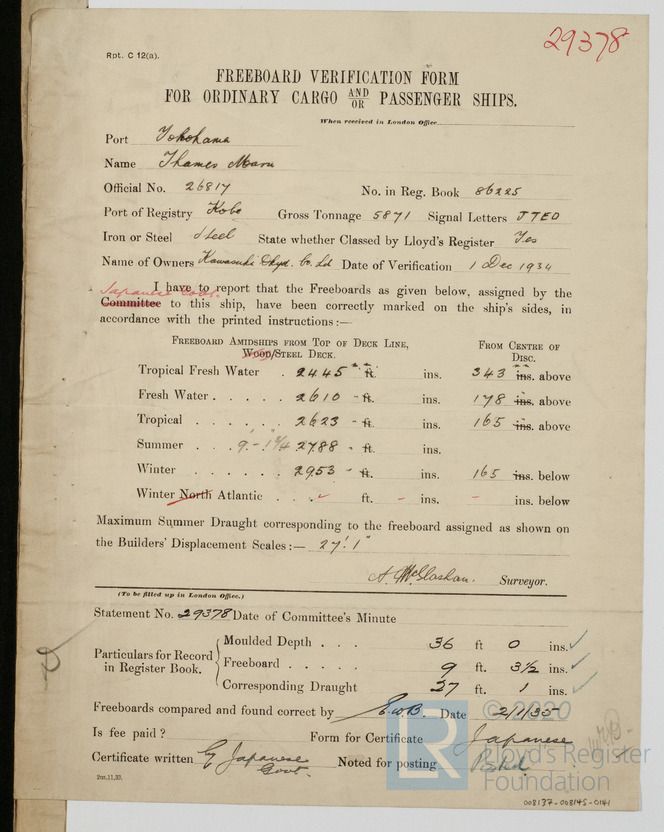 29378
Rpt. C 12(a).
FREEBOARD VERIFICATION FORM
FOR ORDINARY CARGO AND/OR PASSENGER SHIPS.
When received in London Office
Port Yokohama
Name Thames Maru
Official No. 26817 No. in Reg. Book 86225
Port of Registry Kobe Gross Tonnage 5871 Signal Letters JTED
Iron or Steel Steel State whether Classed by Lloyd's Register Yes
Name of Owners Kawasaki Co. Ld Date of Verification 1 Dec 1934
I have to report that the Freeboards as given below, assigned by the
Japanese Govt.
Committee to this ship, have been correctly marked on the ship's sides, in
accordance with the printed instructions:—
FREEBOARD AMIDSHIPS FROM TOP OF DECK LINE, FROM CENTRE OF
WOOD/STEEL DECK. DISC.
Tropical Fresh Water . 2445 ft. ins. 343 ins. above
Fresh Water . . . . . 2610 - ft. ins. 178 ins. above
Tropical . . . . . . 2623 - ft. ins. 165 ins. above
Summer . . . 9 - 1 3/4 2788 - ft. ins.
Winter . . . . . . 2953 - ft. ins. 165 ins. below
Winter North Atlantic . . . ft. - ins. - ins. below
Maximum Summer Draught corresponding to the freeboard assigned as shown on
the Builders' Displacement Scales:— 27' 1"
A. McGlashan. Surveyor.
(To be filled up in London Office.)
Statement No. 29378 Date of Committee's Minute
Particulars for Record in Register Book.
Moulded Depth . . . 36 ft 0 ins. ✓
Freeboard . . . . . 9 ft. 3½ ins. ✓
Corresponding Draught 27 ft. 1 ins. ✓
Freeboards compared and found correct by E.W.B. Date 2/1/35
Is fee paid ? Form for Certificate Japanese
Certificate written By Japanese Govt. Noted for posting Psted
2m,11,33.
© 2020
LR
Lloyd's Register
Foundation
008137-008145-0141